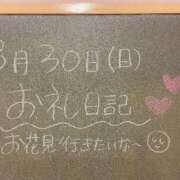 3月30日(日)
お礼日記
お花見行きたいな〜